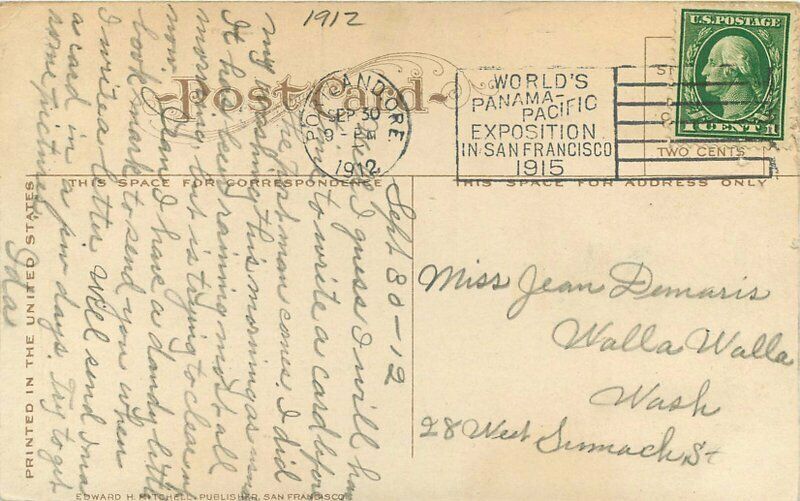 1912
Post Card
PORTLAND, ORE.
SEP 30
9 - PM
1912
WORLD'S
PANAMA-
PACIFIC
EXPOSITION
IN SAN FRANCISCO
1915
U.S. POSTAGE
1 CENT 1
TWO CENTS
THIS SPACE FOR CORRESPONDENCE
THIS SPACE FOR ADDRESS ONLY
PRINTED IN THE UNITED STATES
Sept 30-12
I guess I will have
time to write a card before
the post man comes. I did
my washing this morning as usual
It has been raining most all
morning, but is trying to clear up
now. Jean I have a dandy little
book mark to send you when
I write a letter. Will send Ina
a card in a few days. Try to get
some pictures.
Ida
Miss Jean Demaris
Walla Walla
Wash
28 West Sumach St
EDWARD H. MITCHELL, PUBLISHER, SAN FRANCISCO